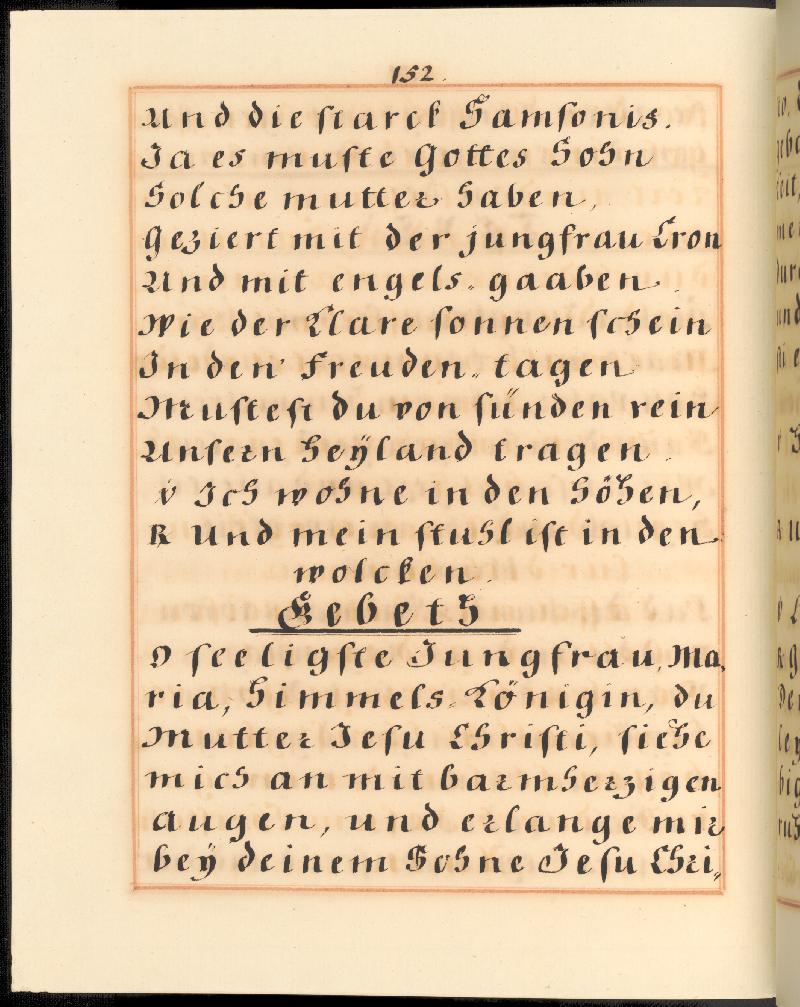 152.
Und die starck Samsonis.
Ja es muste Gottes Sohn
Solche mutter haben,
Geziert mit der jungfrau Cron
Und mit engels- gaaben.
Wie der Clare sonnen schein
In den Freuden- tagen
Mustest du von sünden rein
Unsern heÿland tragen.
V Ich wohne in den höhen,
R Und mein stuhl ist in den
wolcken.
Gebeth
O seeligste Jungfrau, Ma,
ria, himmels- Königin, du
Mutter Jesu Christi, siehe
mich an mit barmherzigen
augen, und erlange mir
beÿ deinem Sohne Jesu Chri,